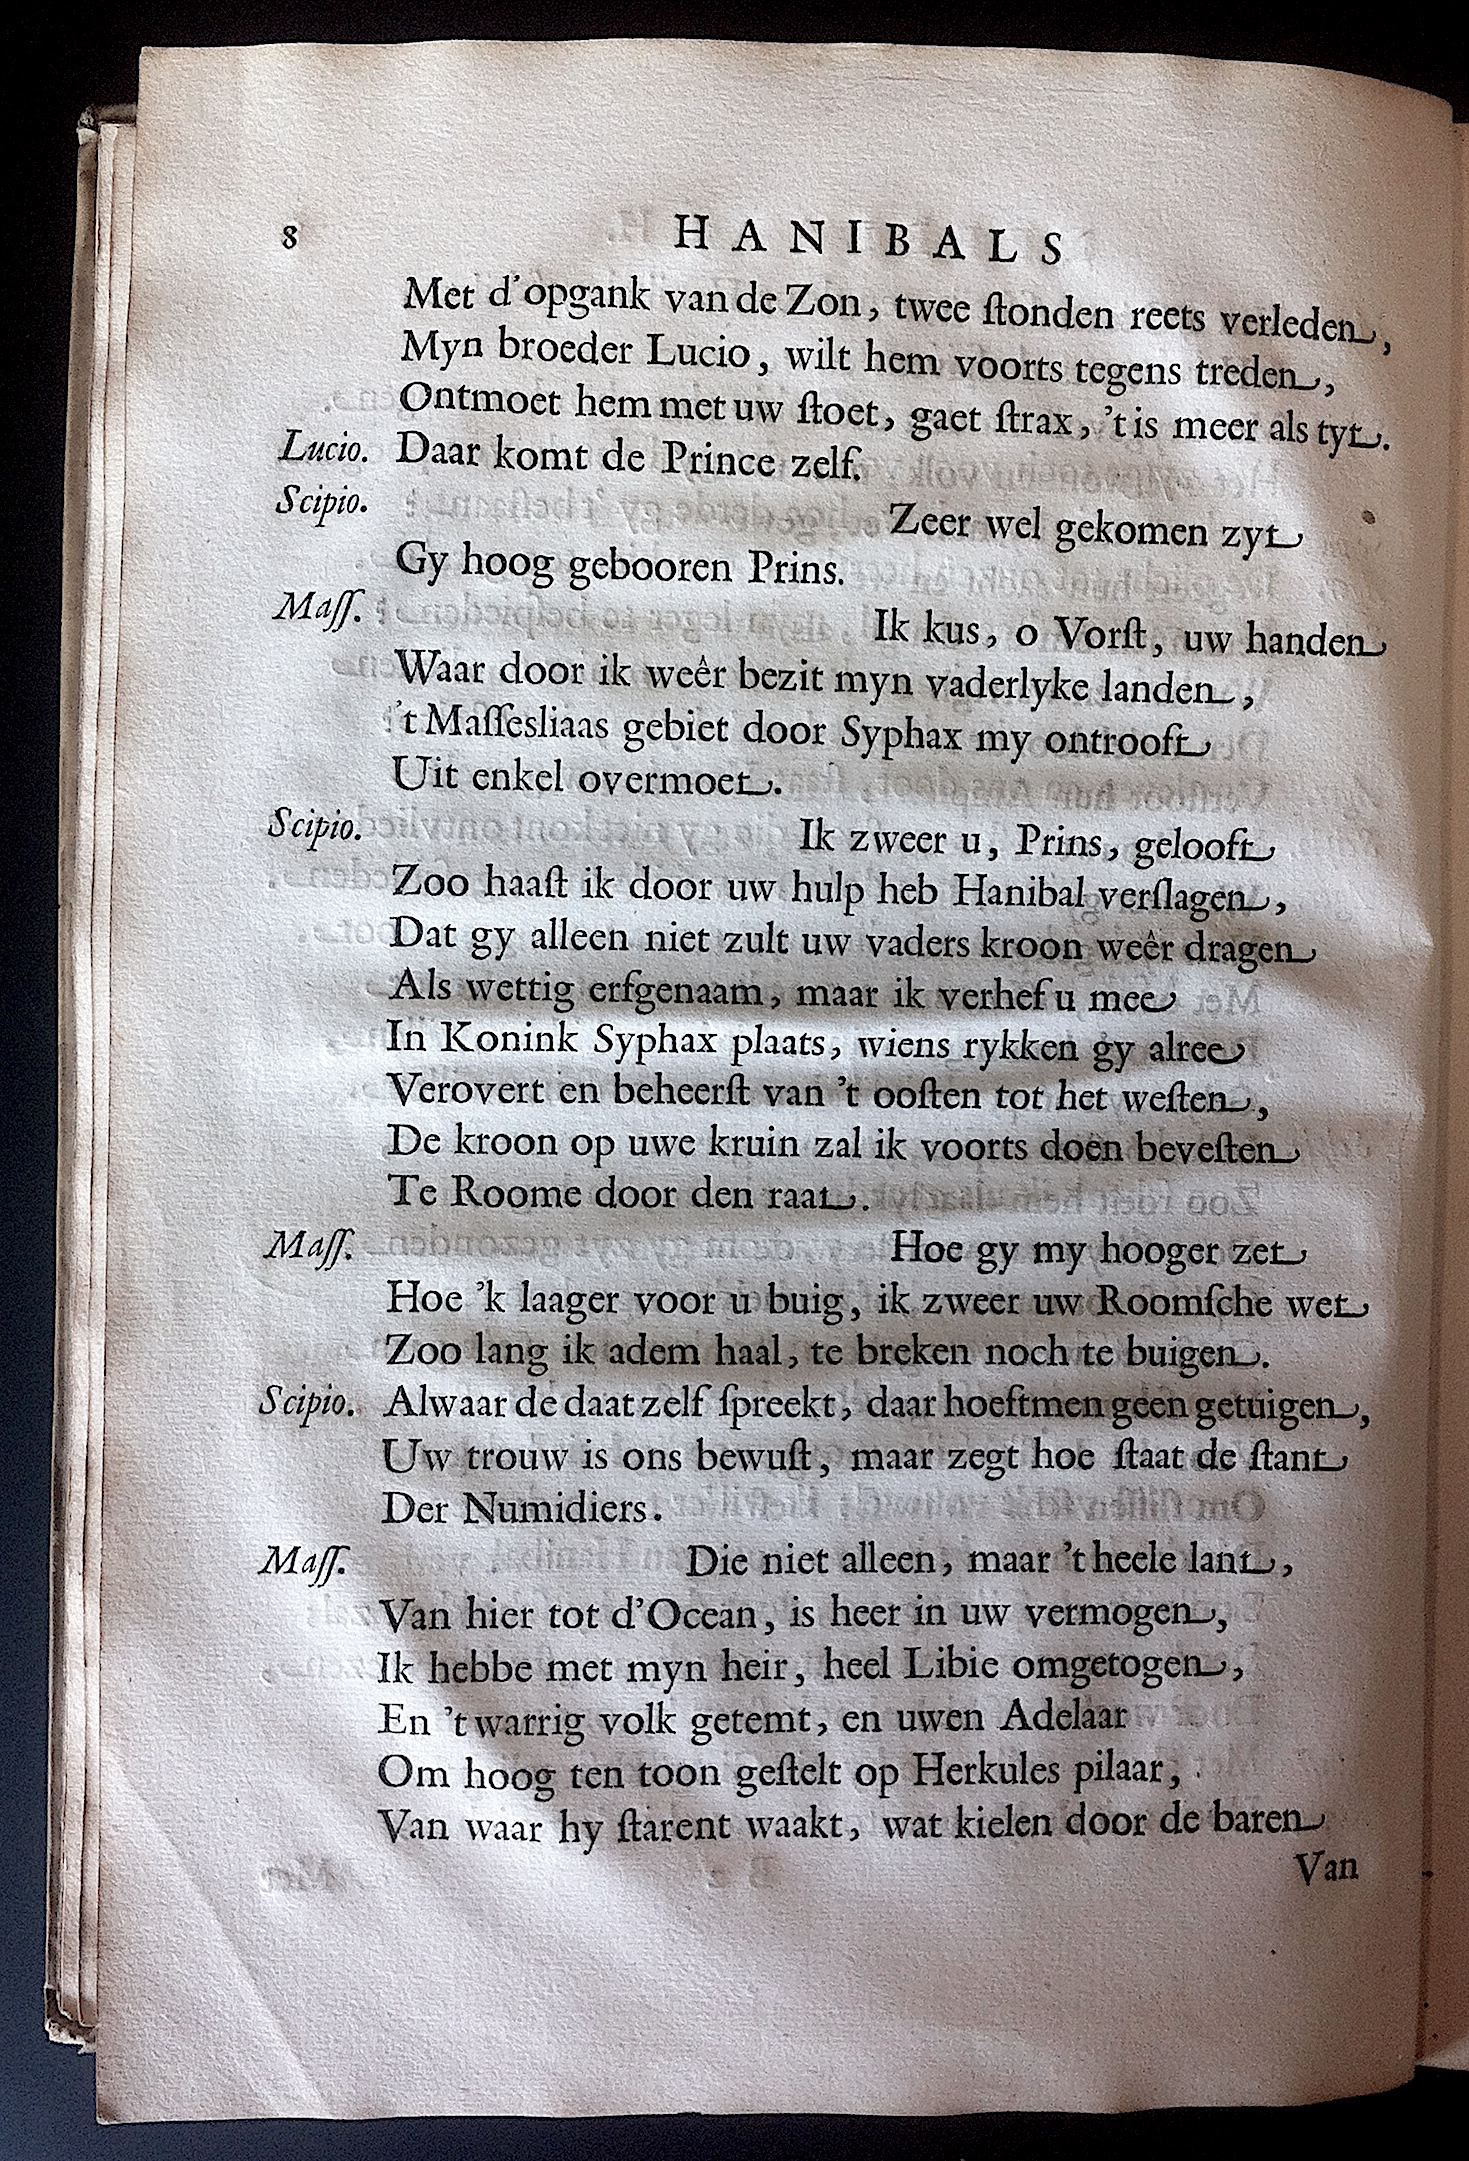 8 HANIBALS
Met d'opgank van de Zon, twee ſtonden reets verleden,
Myn broeder Lucio, wilt hem voorts tegens treden,
Ontmoet hem met uw ſtoet, gaet ſtrax, 't is meer als tyt.
Lucio. Daar komt de Prince zelf.
Scipio. Zeer wel gekomen zyt
Gy hoog gebooren Prins.
Maſſ. Ik kus, o Vorſt, uw handen
Waar door ik weêr bezit myn vaderlyke landen,
't Maſſesliaas gebiet door Syphax my ontrooft
Uit enkel overmoet.
Scipio. Ik zweer u, Prins, gelooft
Zoo haaſt ik door uw hulp heb Hanibal verſlagen,
Dat gy alleen niet zult uw vaders kroon weêr dragen
Als wettig erfgenaam, maar ik verhef u mee
In Konink Syphax plaats, wiens rykken gy alree
Verovert en beheerſt van 't ooſten tot het weſten,
De kroon op uwe kruin zal ik voorts doen beveſten
Te Roome door den raat.
Maſſ. Hoe gy my hooger zet
Hoe 'k laager voor u buig, ik zweer uw Roomſche wet
Zoo lang ik adem haal, te breken noch te buigen.
Scipio. Alwaar de daat zelf ſpreekt, daar hoeftmen geen getuigen,
Uw trouw is ons bewuſt, maar zegt hoe ſtaat de ſtant
Der Numidiers.
Maſſ. Die niet alleen, maar 't heele lant,
Van hier tot d'Ocean, is heer in uw vermogen,
Ik hebbe met myn heir, heel Libie omgetogen,
En 't warrig volk getemt, en uwen Adelaar
Om hoog ten toon geſtelt op Herkules pilaar,
Van waar hy ſtarent waakt, wat kielen door de baren
Van